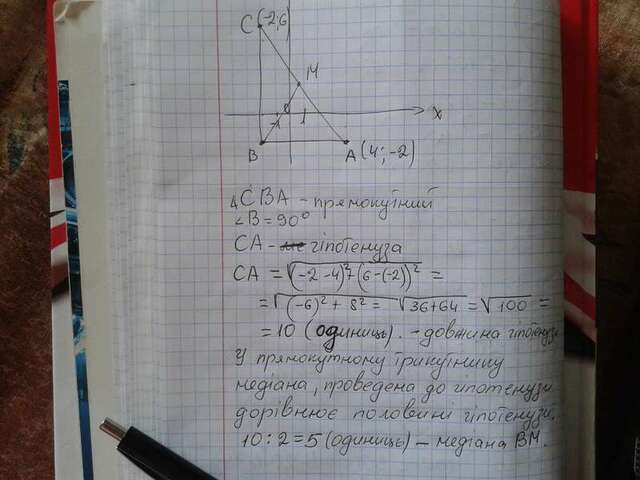 C(-2;6)
M
-1 0 1 x
B A(4;-2)
△CBA - прямокутний
∠B = 90°
CA - гіпотенуза
CA = √(-2-4)²+(6-(-2))² =
= √(-6)² + 8² = √36+64 = √100 =
= 10 (одиниць). - довжина гіпотенузи
У прямокутному трикутнику
медіана, проведена до гіпотенузи
дорівнює половині гіпотенузи.
10:2=5 (одиниць) - медіана BM.